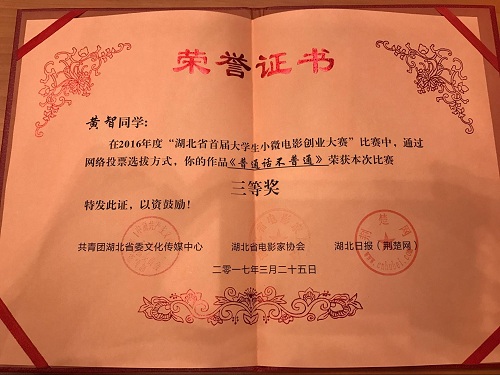 荣誉证书
黄智同学：
在2016年度“湖北省首届大学生小微电影创业大赛”比赛中，通过
网络投票选拔方式，你的作品《普通话不普通》荣获本次比赛
三等奖
特发此证，以资鼓励！
共青团湖北省委文化传媒中心 湖北省电影家协会 湖北日报（荆楚网）
二零一七年三月二十五日